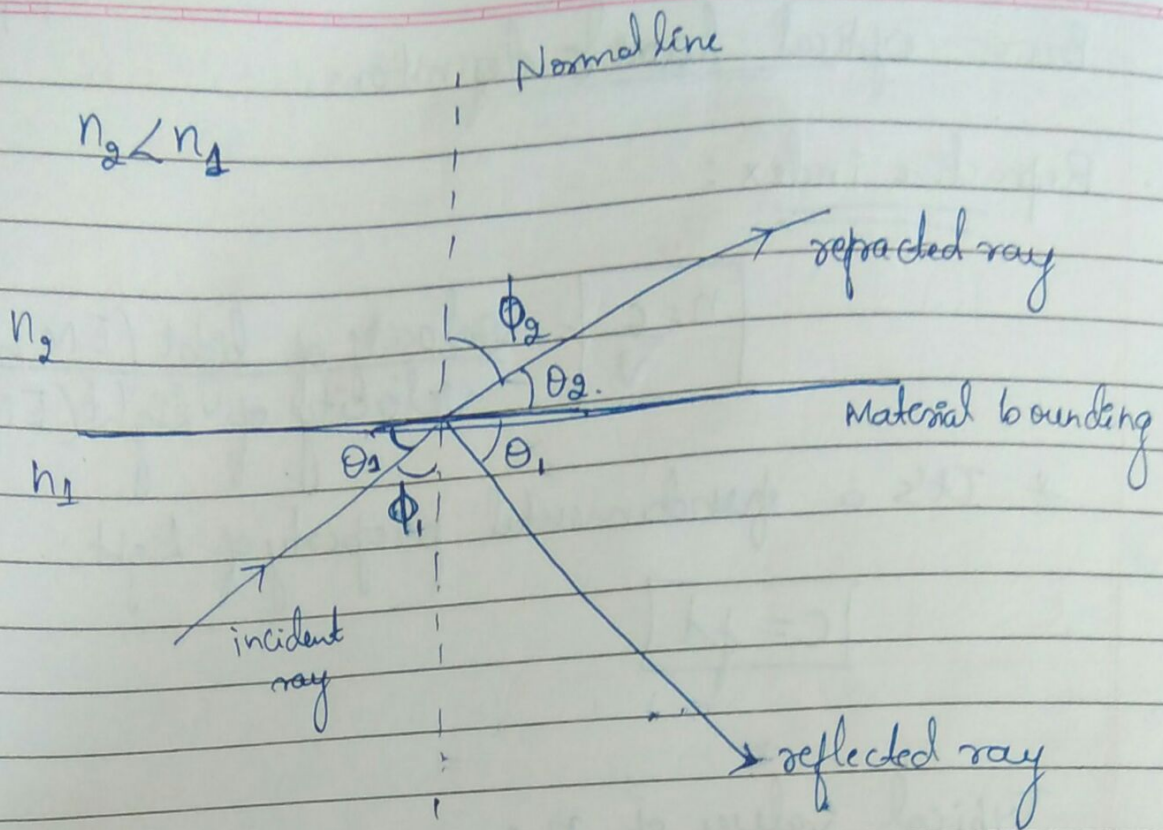 Normal line
n₂ < n₁
refracted ray
ϕ₂
n₂
θ₂.
Material bounding
θ₁
θ₁
n₁
ϕ₁
incident
ray
reflected ray